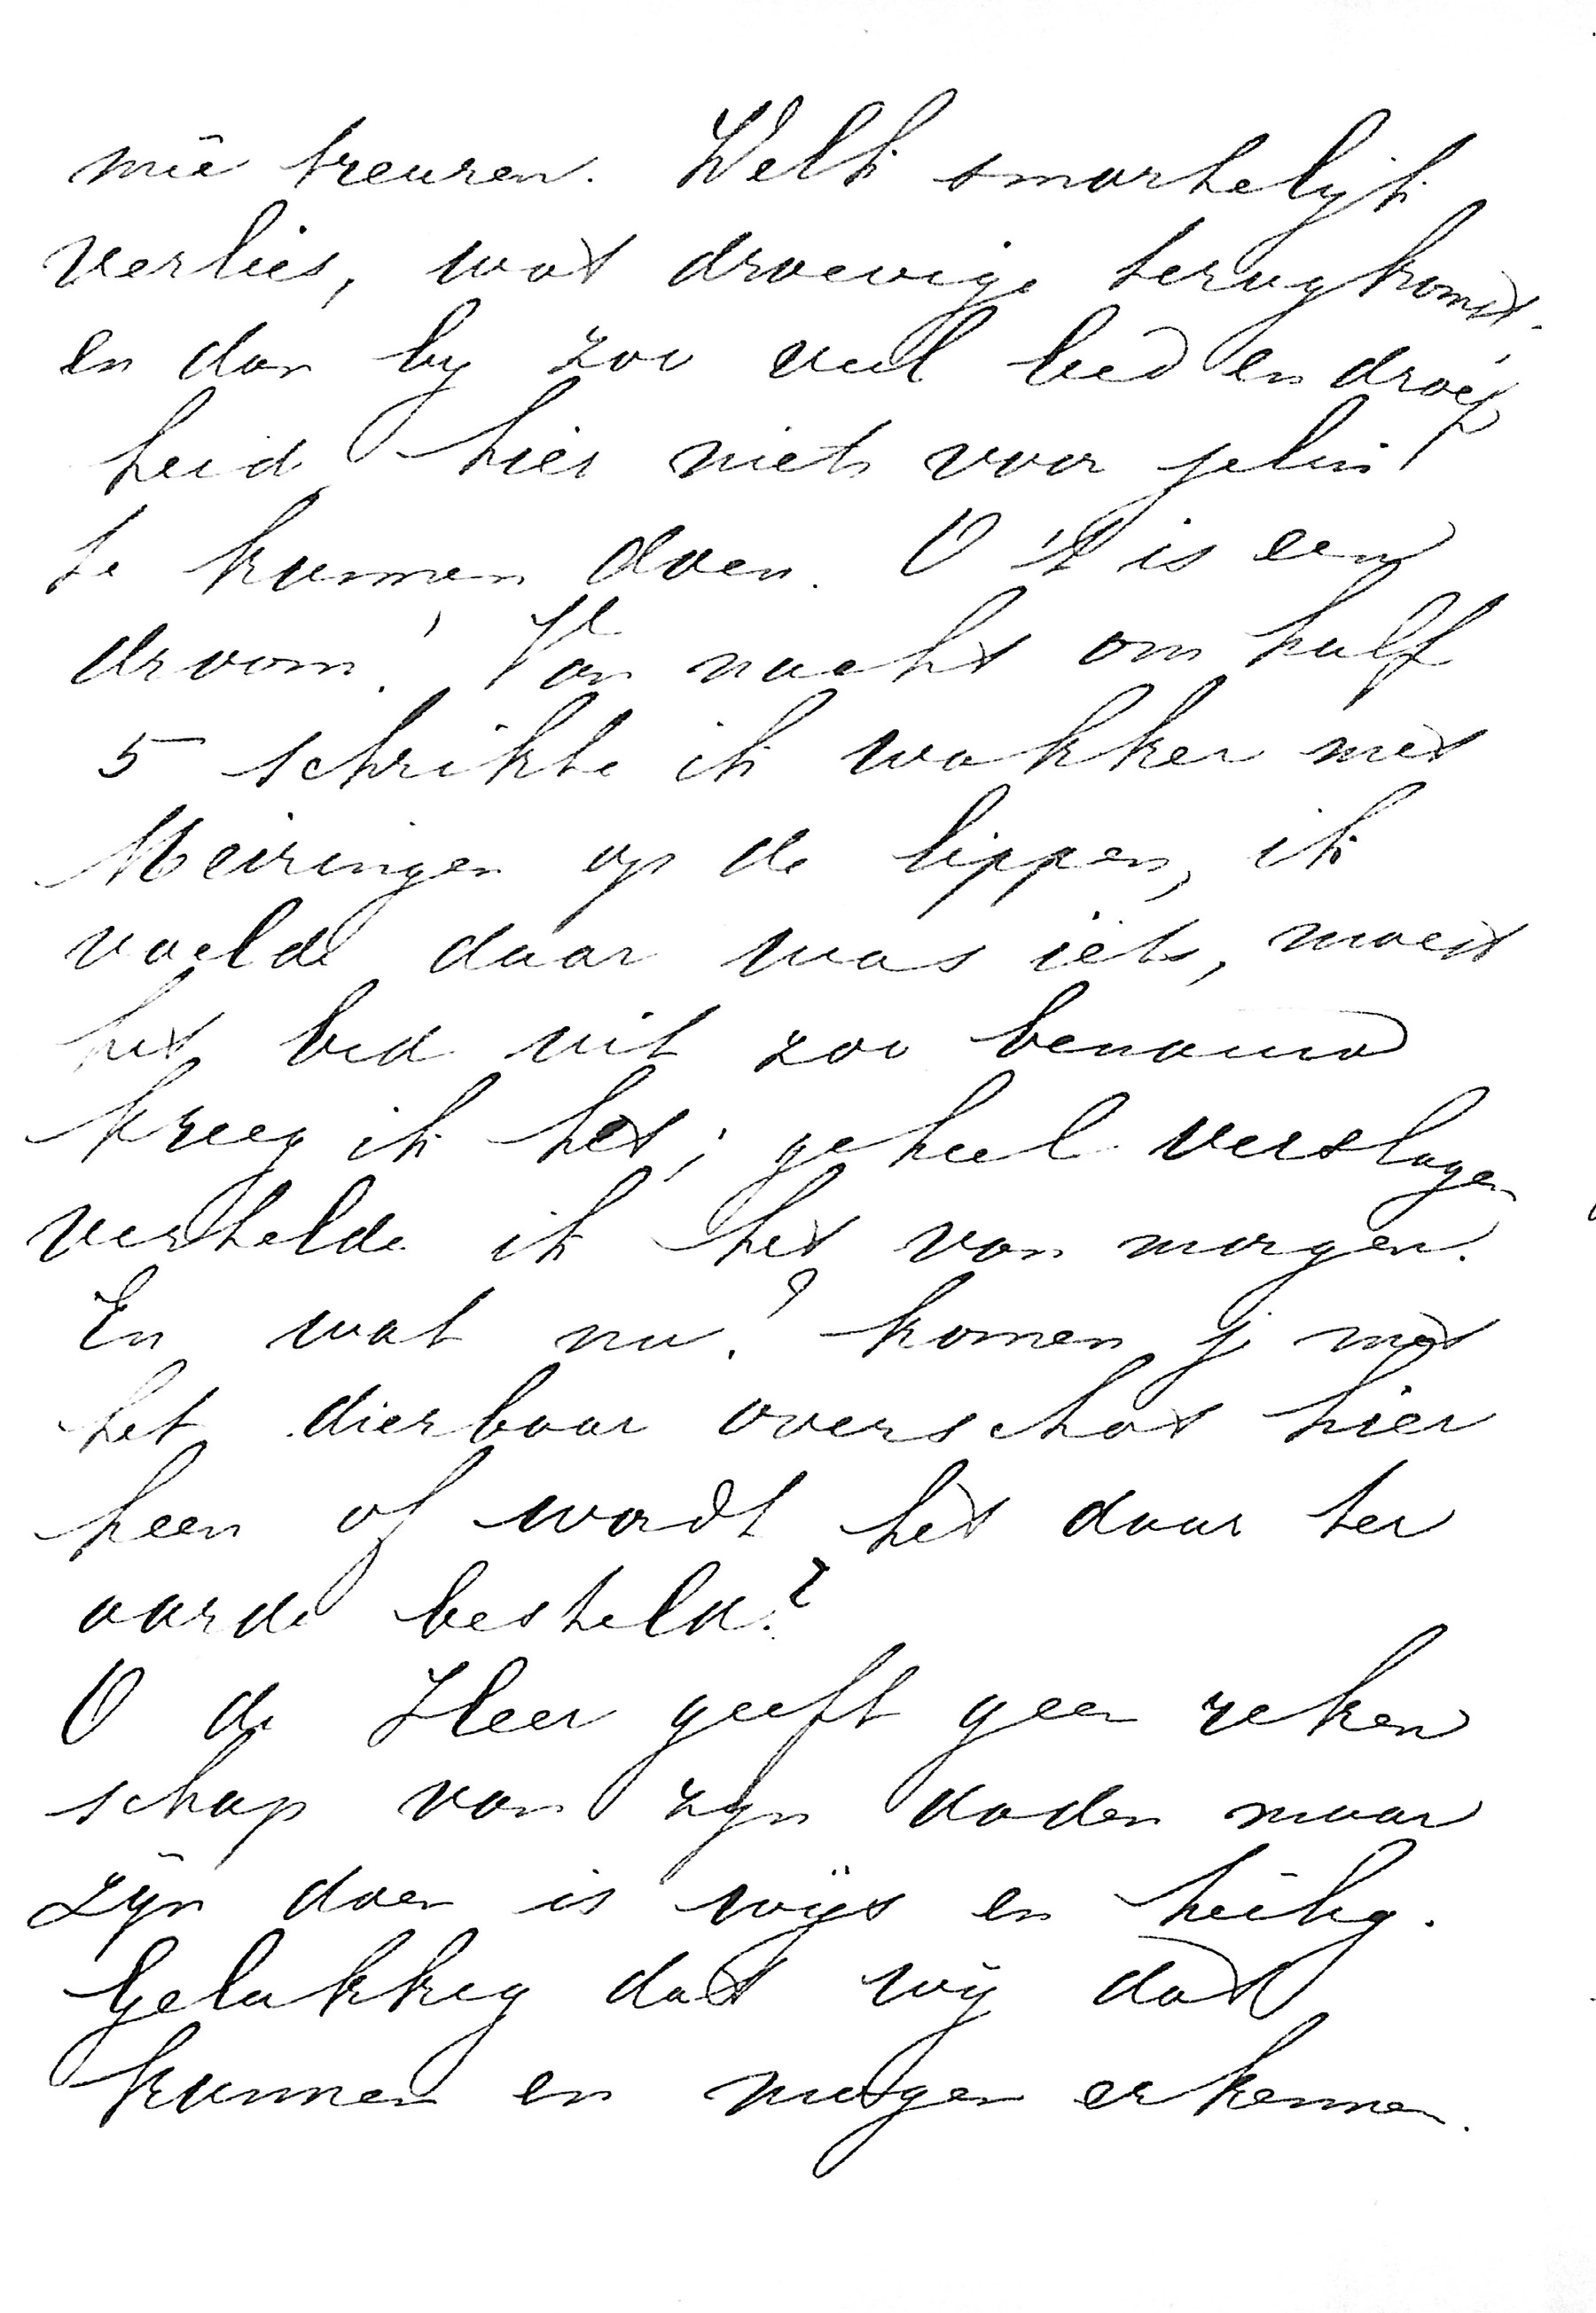 mêe treuren. Welk smartelyk
verlies, wat droevige terugkomst.
en dan by zoo veel leed en droef
heid hier niets voor jelui
te kunnen doen. O 't is een
droom! Van nacht om half
5 schrikte ik wakker met
Meiringen op de lippen, ik
voelde daar was iets, moest
het bed uit zoo benauwd
kreeg ik het; geheel verslagen
vertelde ik het van morgen.
En wat nu? komen je met
het dierbaar overschot hier
heen of wordt het daar ter
aarde besteld?
O de Heer geeft geen reken
schap van zyn daden maar
zijn doen is wijs en heilig.
Gelukkig dat wij dat
kunnen en mogen erkennen.